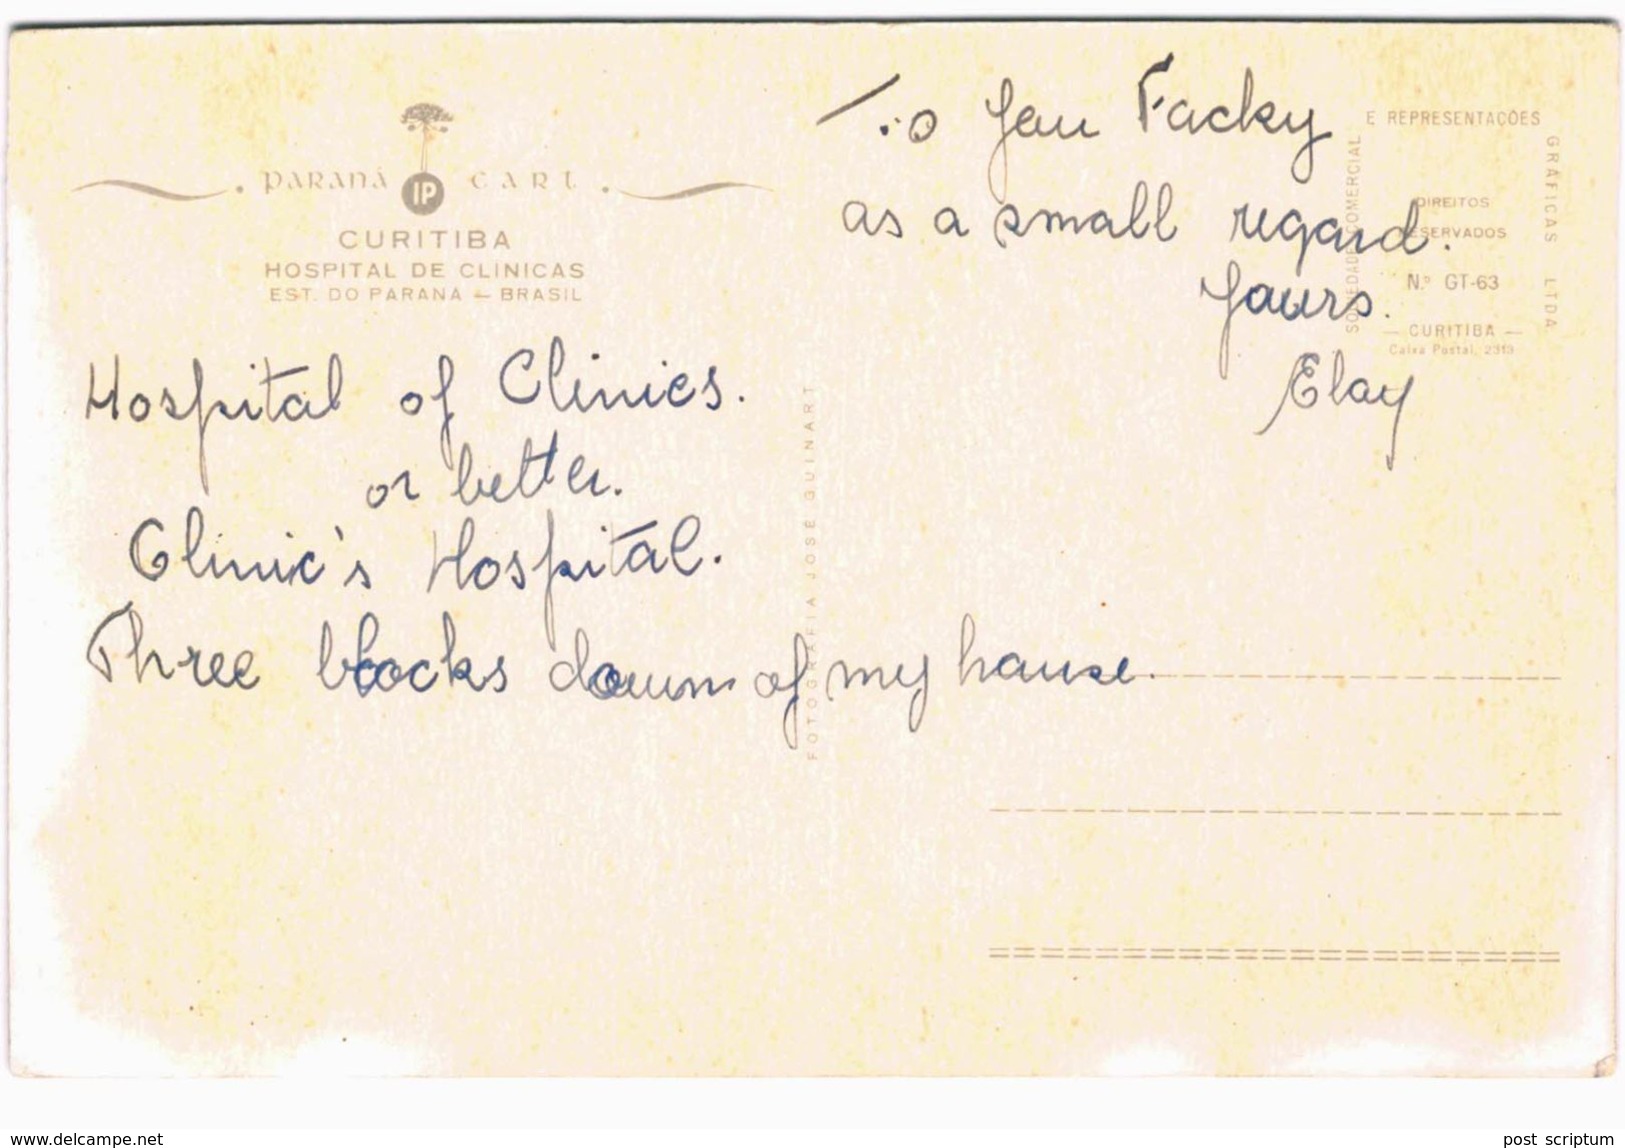 PARANÁ IP CART
CURITIBA
HOSPITAL DE CLINICAS
EST. DO PARANÁ — BRASIL
Hospital of Clinics.
or better.
Clinic's Hospital.
Three blocks down of my house.
To Jan Facky
as a small regard.
Yours.
Elay
SOCIEDADE COMERCIAL
E REPRESENTAÇÕES
GRÁFICAS LTDA
DIREITOS
RESERVADOS
N.º GT-63
— CURITIBA —
Caixa Postal, 2313
FOTOGRAFIA JOSÉ GUINART
www.delcampe.net
post_scriptum